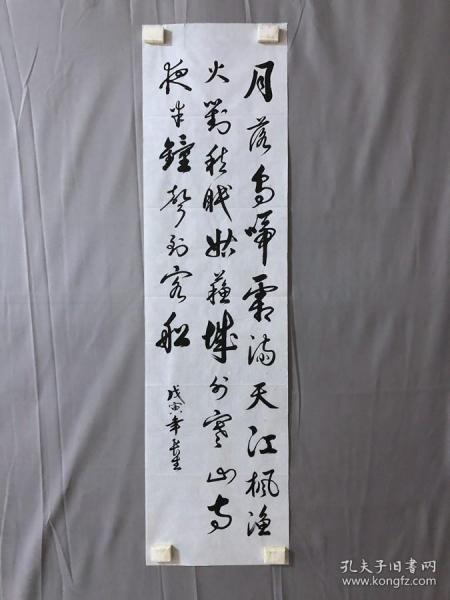 月落烏啼霜满天江楓漁
火對秋眠姑蘇城外寒山寺
夜半鐘聲到客船
戊寅年長生
孔夫子旧书网
www.kongfz.com